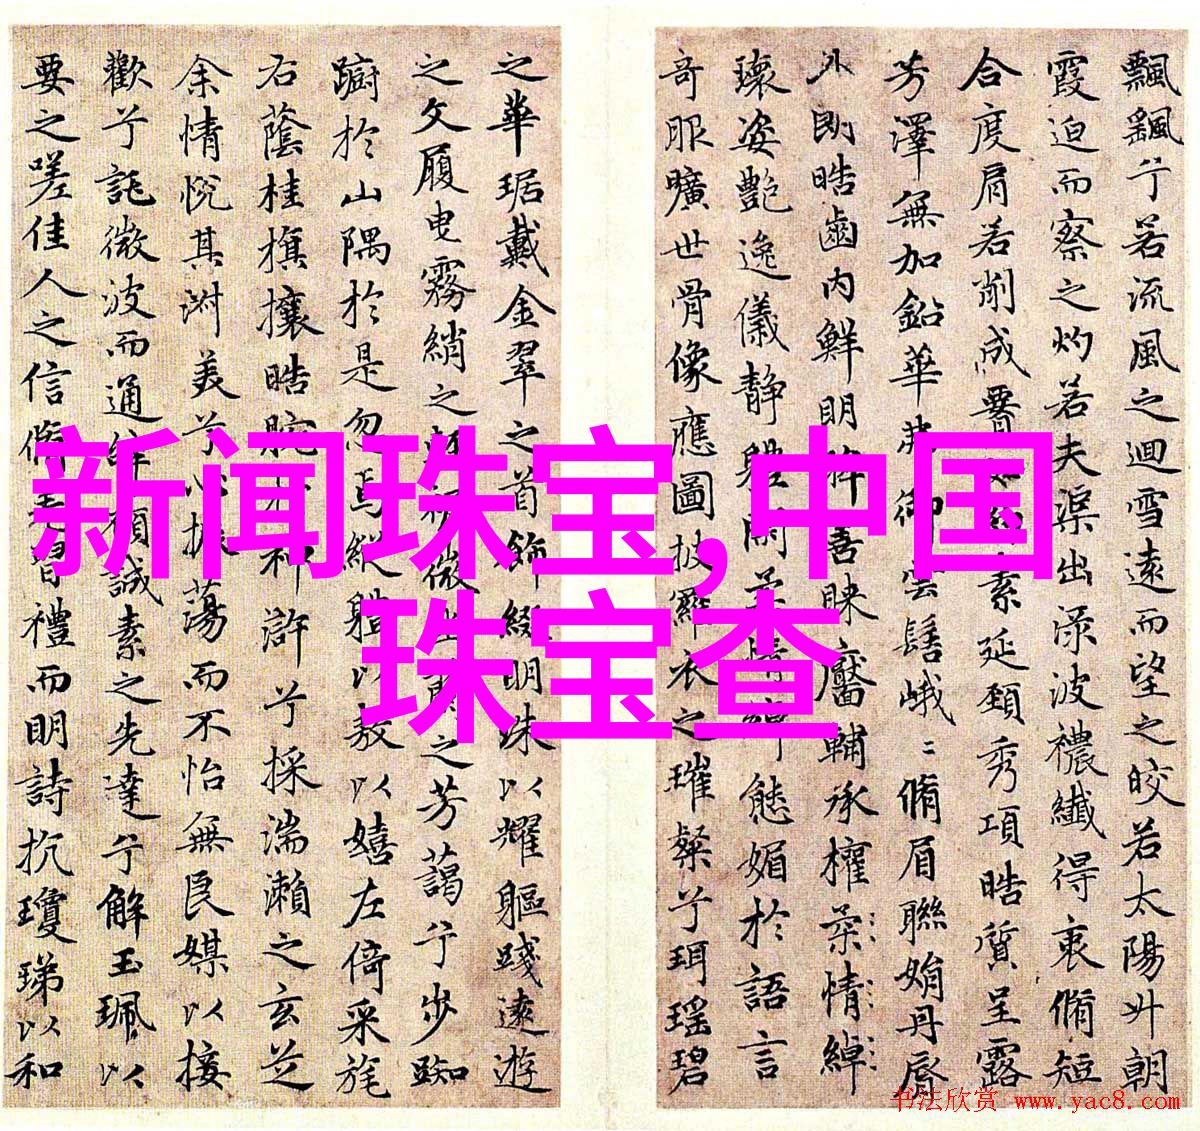 新闻珠宝,中国
珠宝查
飄飖兮若流風之迴雪遠而望之皎若太陽升朝
霞迫而察之灼若夫渠出渌波襛纖得衷脩短
合度肩若削成素延頸秀項皓質呈露
芳澤無加鉛華弗御雲髻峨〻脩眉聯娟丹脣
外朗皓齒內鮮明眸善睞靨輔承權柔情綽
瓌姿艷逸儀靜體閑柔情綽態媚於語言
奇服曠世骨像應圖披羅衣之璀粲兮珥瑤碧
之華琚戴金翠之首飾綴明珠以耀軀踐遠遊
之文履曳霧綃之輕裾微幽蘭之芳藹兮步踟
躕於山隅於是忽焉縱體以遨以嬉左倚采旄
右蔭桂旗攘皓腕於神滸兮採湍瀨之玄芝
余情悅其淑美兮心振蕩而不怡無良媒以接
歡兮託微波而通辭願誠素之先達兮解玉珮以
要之嗟佳人之信脩羌習禮而明詩抗瓊珶以和
书法欣赏 www.yac8.com